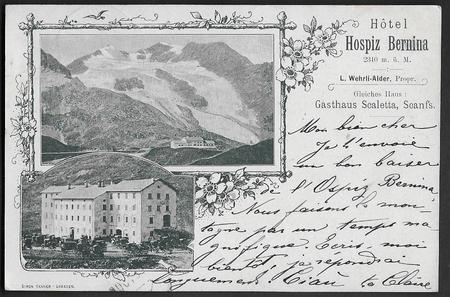 Hôtel
Hospiz Bernina
2340 m. ü. M.
L. Wehrli-Alder, Propr.
Gleiches Haus:
Gasthaus Scaletta, Scanfs.
Mon bien cher
Je t'envoie
un bon baiser
de l'Ospiz Bernina
Nous faisons la mon-
tagne par un temps ma
gnifique. Ecris-moi
bientôt, je répondrai
longuement Ciau ta Claire
SIMON TANNER - SAMADEN.